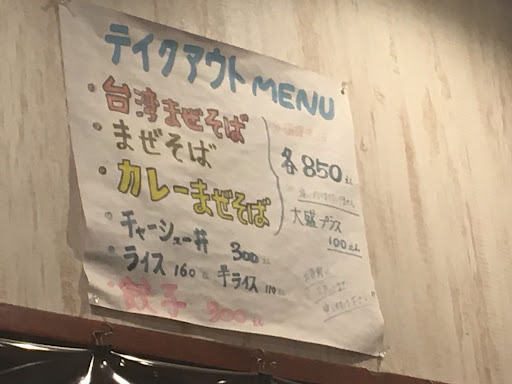 テイクアウトMENU
・台湾まぜそば
・まぜそば
・カレーまぜそば
各850
大盛プラス
100えん
・チャーシュー丼 300えん
・ライス 160 半ライス 110
・餃子 300えん